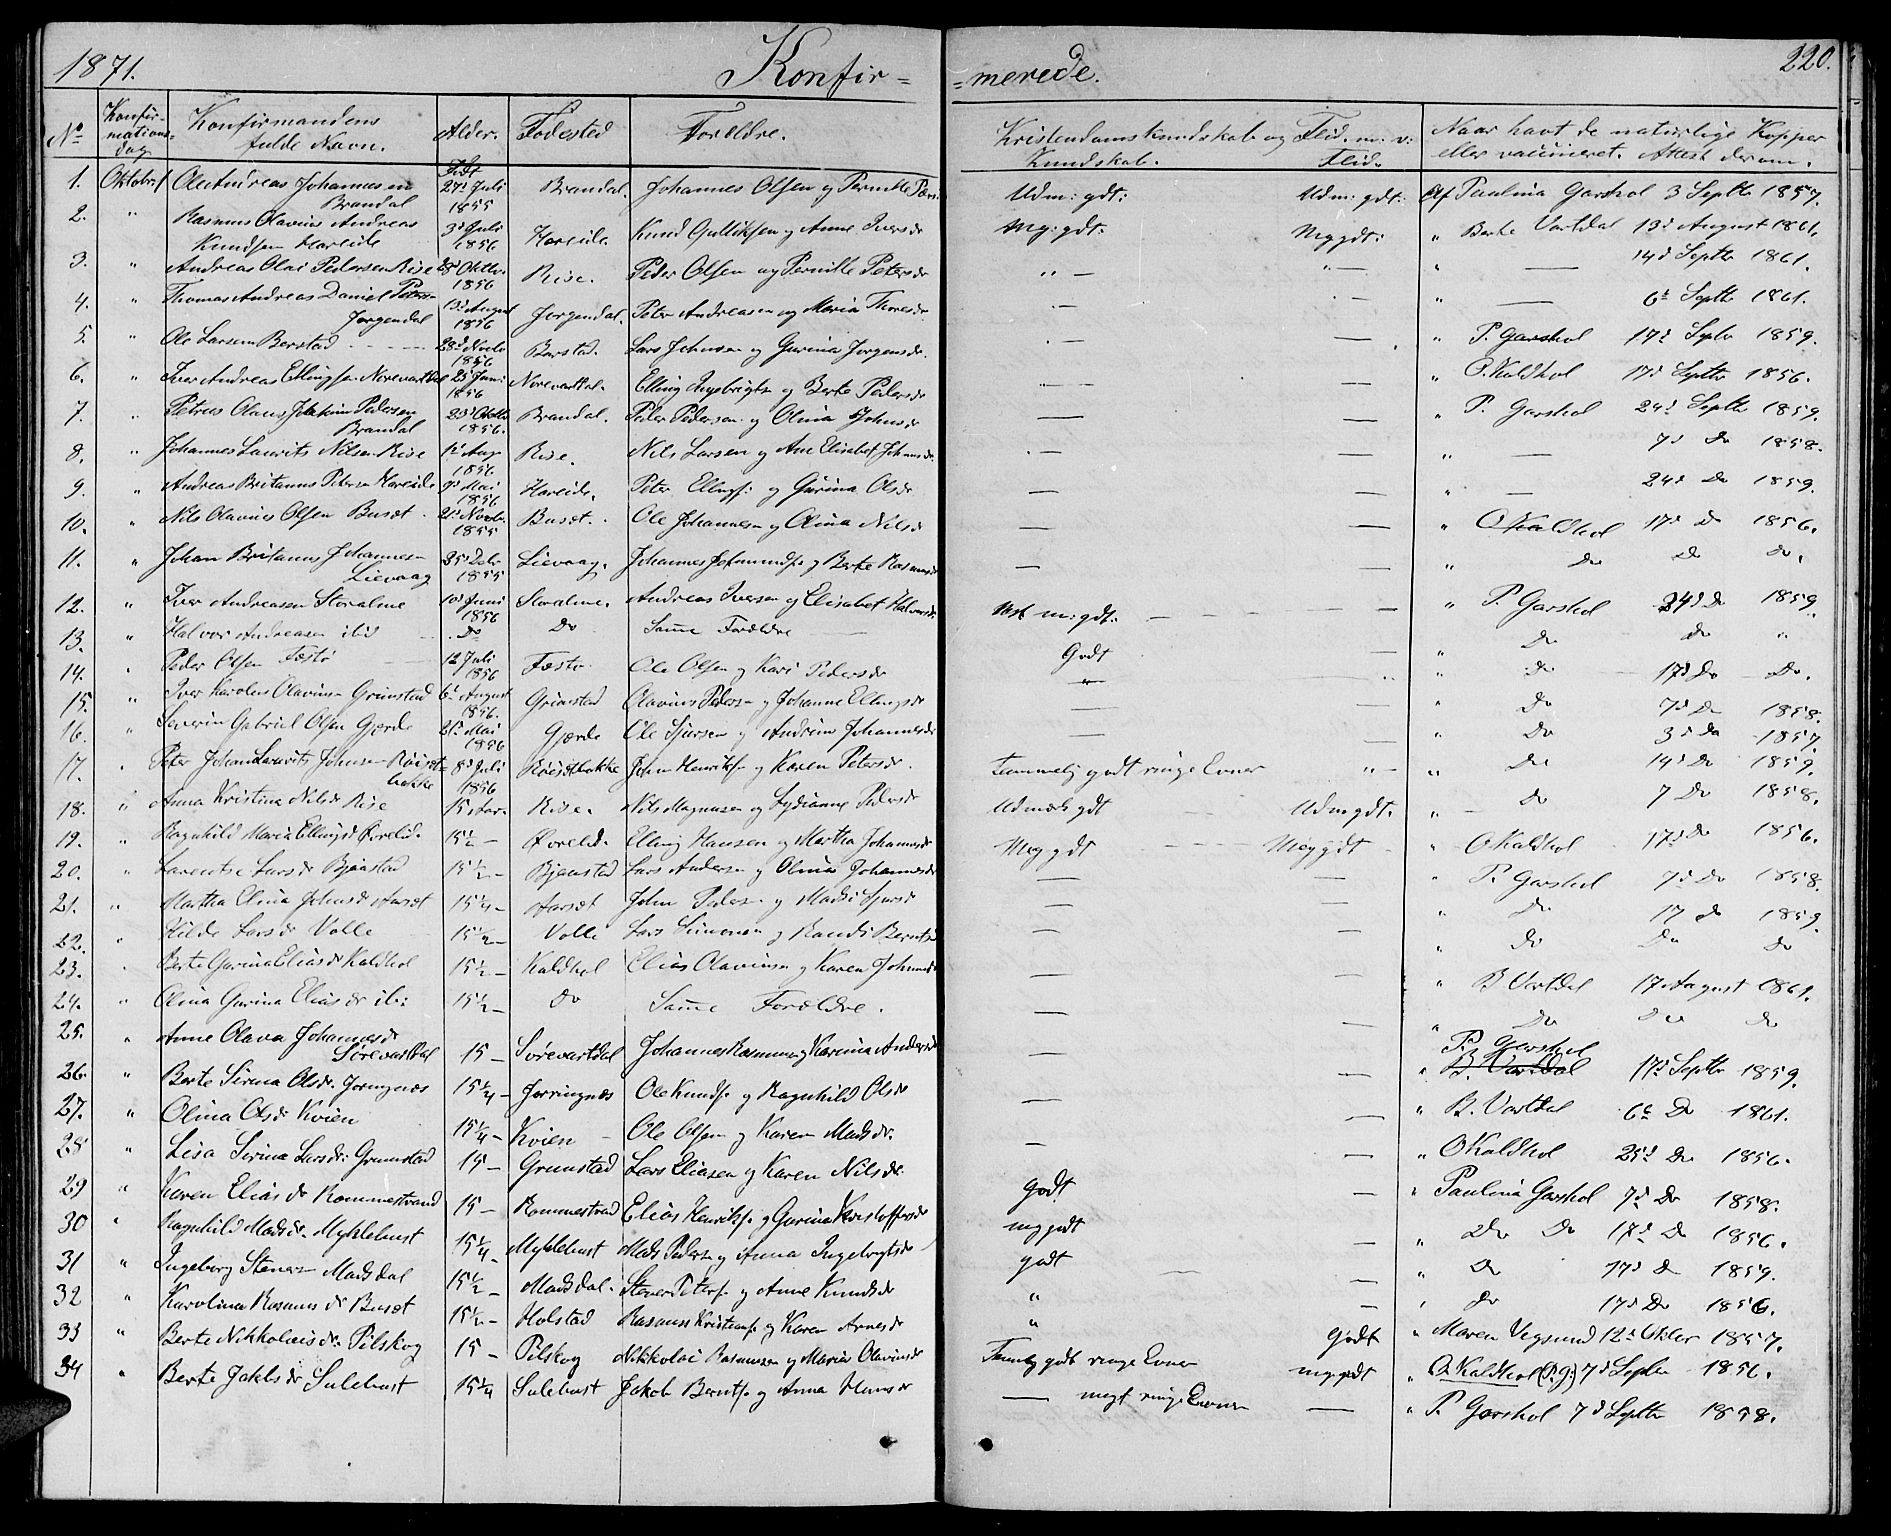 1871. Konfir= =merede. 220.
No Konfir-mations=dag Konfirmandens fulde Navn. Alder. Fødested Forældre. Kristendomskundskab og Flid. m. v: Kundskab. Flid. Naar havt de naturlige Kopper eller vaccineret. Attest derom.
Født
1. Oktobr 1 Ole Andreas Johannesen Brandal 27d Juli 1855 Brandal Johannes Olsen og Pernille Udm: gdt: Udm: gdt: Af Paulina Garshol 3 Septb 1857.
2. " Rasmus Olavius Andreas Knudsen Hareide 3d Juli 1856 Hareide Knud Gulliksen og Anne Iversdr Mg: gdt. Meg gdt: " Berte Vartdal 13d August 1861.
3. " Andreas Olai Pedersen Rise 25d Oktbr. 1856 Rise. Peder Olsen og Pernille Petersdr " — " — " — 14d Septbr 1861.
4. " Thomas Andreas Daniel Petersen Jørgendal 13d August 1856 Jørgendal. Peter Andreasen og Maria Thoresdr. . — . — " — 6te Septbr 1861.
5. " Ole Larsen Barstad 28d Novb 1856 Barstad. Lars Johnsen og Gurina Jørgensdr. . — — " P. Garshol 17d Septbr 1859.
6. " Iver Andreas Ellingsen Norevartdal 25d Juni 1856 Norevartdal. Elling Ingebrigts og Berte Pedersdr — — " O. Kaldhol 17d Septbr 1856.
7. " Petrus Olaus Joakim Pedersen Brandal 23d Oktbr 1856. Brandal. Peder Pedersen og Olina Johnsdr — — " P. Garshol 24d Septbr 1859.
8. " Johannes Laurits Nilsen Rise 1d Aug 1856 Rise. Nils Larsen og Ane Elisabet Johnsdr. . — — " — 7d Do 1858.
9. " Andreas Britanus Petersen Hareide 9d Mai 1856 Hareide. Peter Ellingsen og Gurina Olsdr — — " — 24d Do 1859.
10. " Nils Olavius Olsen Buset 21d Novbr. 1855 Buset. Ole Johannesen og Olina Nilsdr — — " O Kaldhol 17d Do 1856.
11. " Johan Britanus Johannesen Lievaag 25d Debr 1855 Lievaag. Johannes Jetmundsen og Berte Rasmusdr — — " Do Do Do.
12. " Iver Andreasen Storalme 10d Juni 1856 Storalme. Andreas Iversen og Elisabet Halvorsdr m: gdt. — " P. Garshol 24d Do 1859.
13. " Halvor Andreasen ibid Do Do Same Forældre — Godt — " Do Do "
14. " Peder Olsen Festø 12 Juli 1856 Festø Ole Olsen og Kari Pedersdr " " " Do 17d Do Do.
15. " Iver Karolus Olavius Grimstad 6te August 1856. Grimstad Olavius Peders og Johanne Ellingsdr — — " Do 7d Do 1858.
16. " Severin Gabriel Olsen Gjerde 21d Mai 1856 Gjerde Ole Sjursen og Andrine Johannesdr — — " Do 3d Do 1857
17. " Peter Johan Lauritz Johnsen Røiset-bakke 8d Juli 1856 Røisetbakke John Henriksen og Karen Petersdr. temmelig godt ringe Evner " — " Do 14d Do 1859.
18. " Anna Kristina Nilsdr Rise 15 Aar. Rise. Nils Magnusen og Lydianne Pedersdr Udmærk gdt Udmgdt. " — Do 7 Do 1858.
19. Ragnhild Maria Ellingsd Øvrelid. 15½ — Øvrelid. Elling Hansen og Martha Johannesdr Meg gdt Meg gdt " O Kaldhol 17d Do 1856.
20. " Larentse Larsdr Bjaastad 15½ — Bjaastad Lars Andersen og Olina Johannesdr — — " P. Garshol 7d Do 1858.
21. " Martha Olina Johnsdr Aarset 15¼ — Aarset John Peders og Madsi Sjursdr — — " Do 17 Do 1859
22. " Hilda Larsdr Volle 15½ — Volle Lars Simonsen og Randi Berntsd — — " Do Do Do
23. " Berte Gurina Eliasdr Kaldhol 15½ — Kaldhol Elias Olavius og Karen Johnsdr — — " B Vartdal 17 August 1861.
24. " Olina Gurina Eliasdr ibi 15½ — Do Same Forældre. — — " Do Do Do
25. " Anne Olava Johannesdr Sørevartdal 15 — Sørevartdal Johannes Rasmusen og Karina Andersdr — — " P. Garshol B. Vartdal 17d Septbr 1859.
26. " Berte Sirina Olsdr. Jøringnæs 15¼ — Jørringnæs Ole Knudsen og Ragnhild Olsdr — — " B. Vartdal 6te Do 1861.
27. " Olina Olsdr Kvien 15¼ — Kvien Ole Olsen og Karen Madsdr. — — " O Kaldhol 25d Do 1856.
28 " Lisa Sirina Larsdr: Grimstad 15 — Grimstad Lars Eliasen og Karen Nilsdr. Godt — " Paulina Garshol 7d Do 1858.
29 " Karen Eliasdr Kommestrand 15 — Rommestrad Elias Henriksen og Gurina Kristoffersdr meg godt — " Do Do 17d Do 1856.
30 " Ragnhild Madsdr. Myklebust 15¼ — Myklebust Mads Peders og Anna Ingebrigtsdr godt — — " Do 17d Do 1859.
31 " Ingeborg Stener Madsdal 15½ — Madsdal. Stener Peters og Anne Knudsdr " — " Do 17d Do 1856.
32 " Karolina Rasmusdr Buset 15½ — Holstad Rasmus Kristians og Karen Arnesdr " Godt " Maren Vegsund 12d Oktbr 1857.
33 " Berte Nikkolaisdr. Pilskog 15 — Pilskog Nikkolai Rasmussen og Maria Olaviusdr Temlig godt ringe Evner meg godt " O. Kaldhol (P.G.) 7d Septbr 1856.
34 " Berte Jakobsdr Sulebust 15¼ Sulebust Jakob Berntsen og Anna Hansdr — megt ringe Evner — " P. Garshol 7d Septbr 1858.